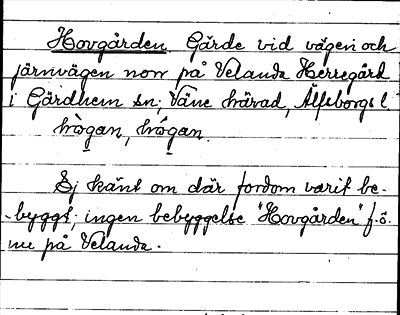 Hovgården. Gärde vid vägen och
järnvägen norr på Velanda Herregård
i Gärdhem sn, Väne härad, Älfsborgs l.
hògan, hógan.
Ej känt om där fordom varit be-
-byggt; ingen bebyggelse "Hovgården" f. ö.
nu på Velanda.